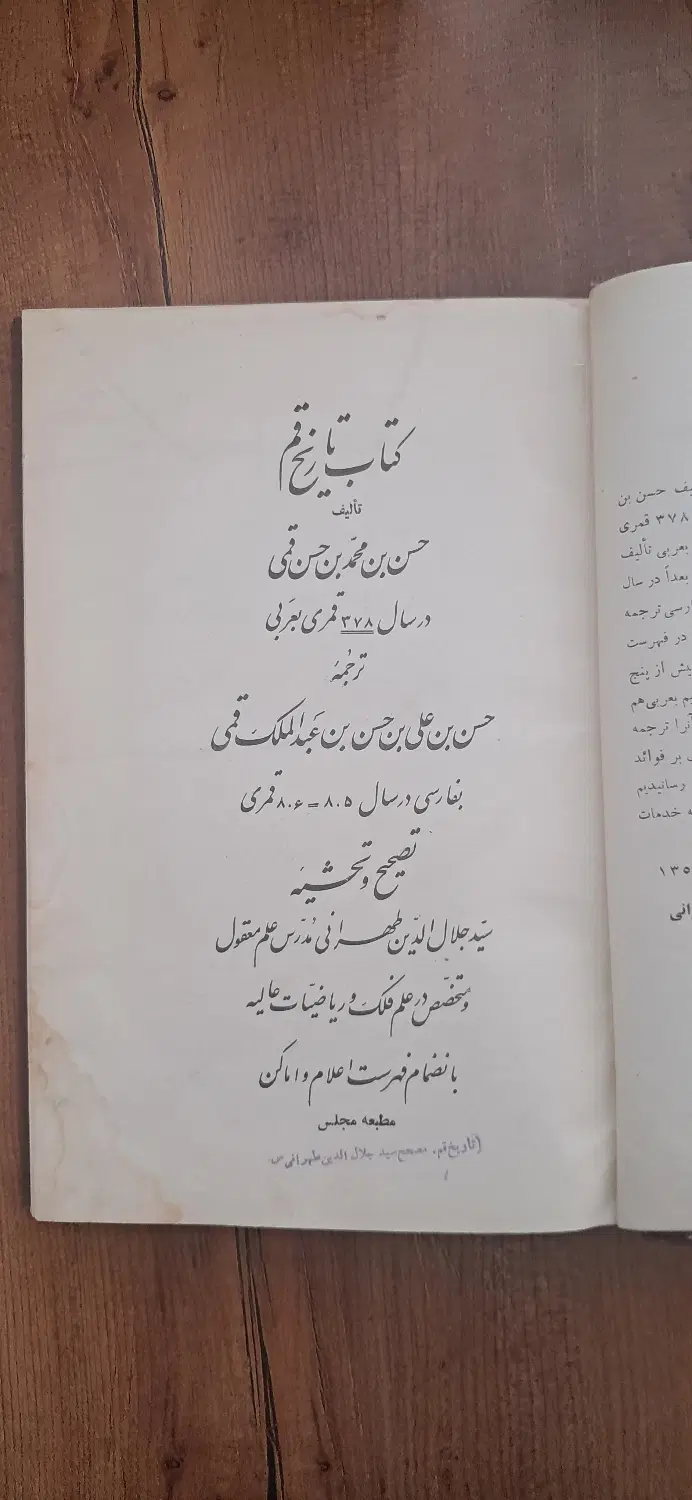 کتاب تاریخ قم
تألیف
حسن بن محمّد بن حسن قمی
در سال ۳۷۸ قمری بعربی
ترجمهٔ
حسن بن علی بن حسن بن عبدالملک قمی
بفارسی در سال ۸۰۵ = ۸۰۶ قمری
تصحیح و تحشیه
سیّد جلال الدّین طهرانی مُدرّس علم معقول
و متخصّص در علم فلک و ریاضیّات عالیه
بانضمام فهرست اعلام و اماکن
مطبعه مجلس
(تاریخ قم. مصحح سید جلال الدین طهرانی
حسن بن
۳۷۸ قمری
بعربی تألیف
بعداً در سال
ترجمه
در فهرست
از پنج
بعربی هم
آنرا ترجمه
بر فوائد
رسانیدیم
خدمات